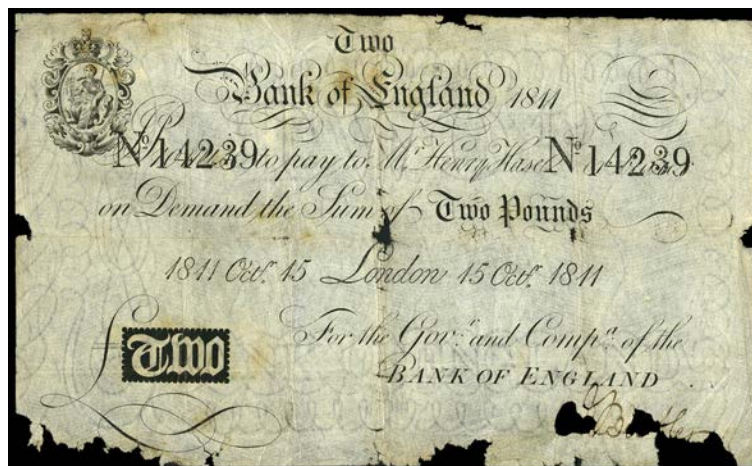 Two
Bank of England 1811
Nº 14239 to pay to Mr. Henry Hase Nº 14239
on Demand the Sum of Two Pounds
1811 Octr. 15 London 15 Octr. 1811
For the Govr. and Compa. of the
£ Two
BANK OF ENGLAND